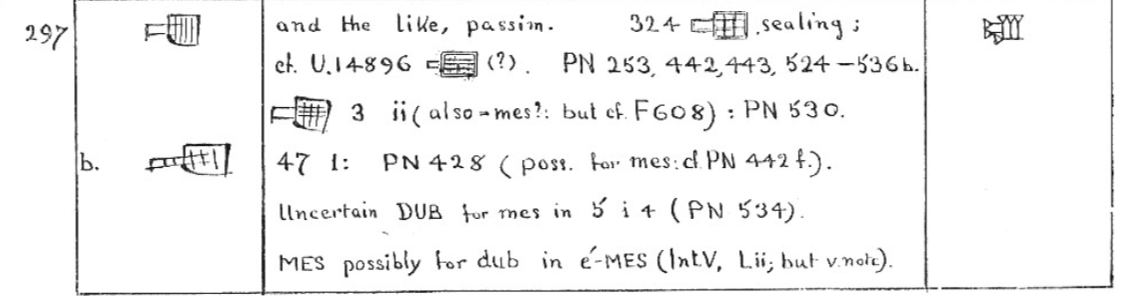 297 and the like, passim. 324 sealing;
cf. U.14896 (?). PN 253, 442,443, 524–536b.
3 ii (also = mes?: but cf. F608) : PN 530.
b. 47 1: PN 428 (poss. for mes: cf. PN 442 f.).
Uncertain DUB for mes in 5 i 4 (PN 534).
MES possibly for dub in é-MES (Int.V, Lii; but v.note).